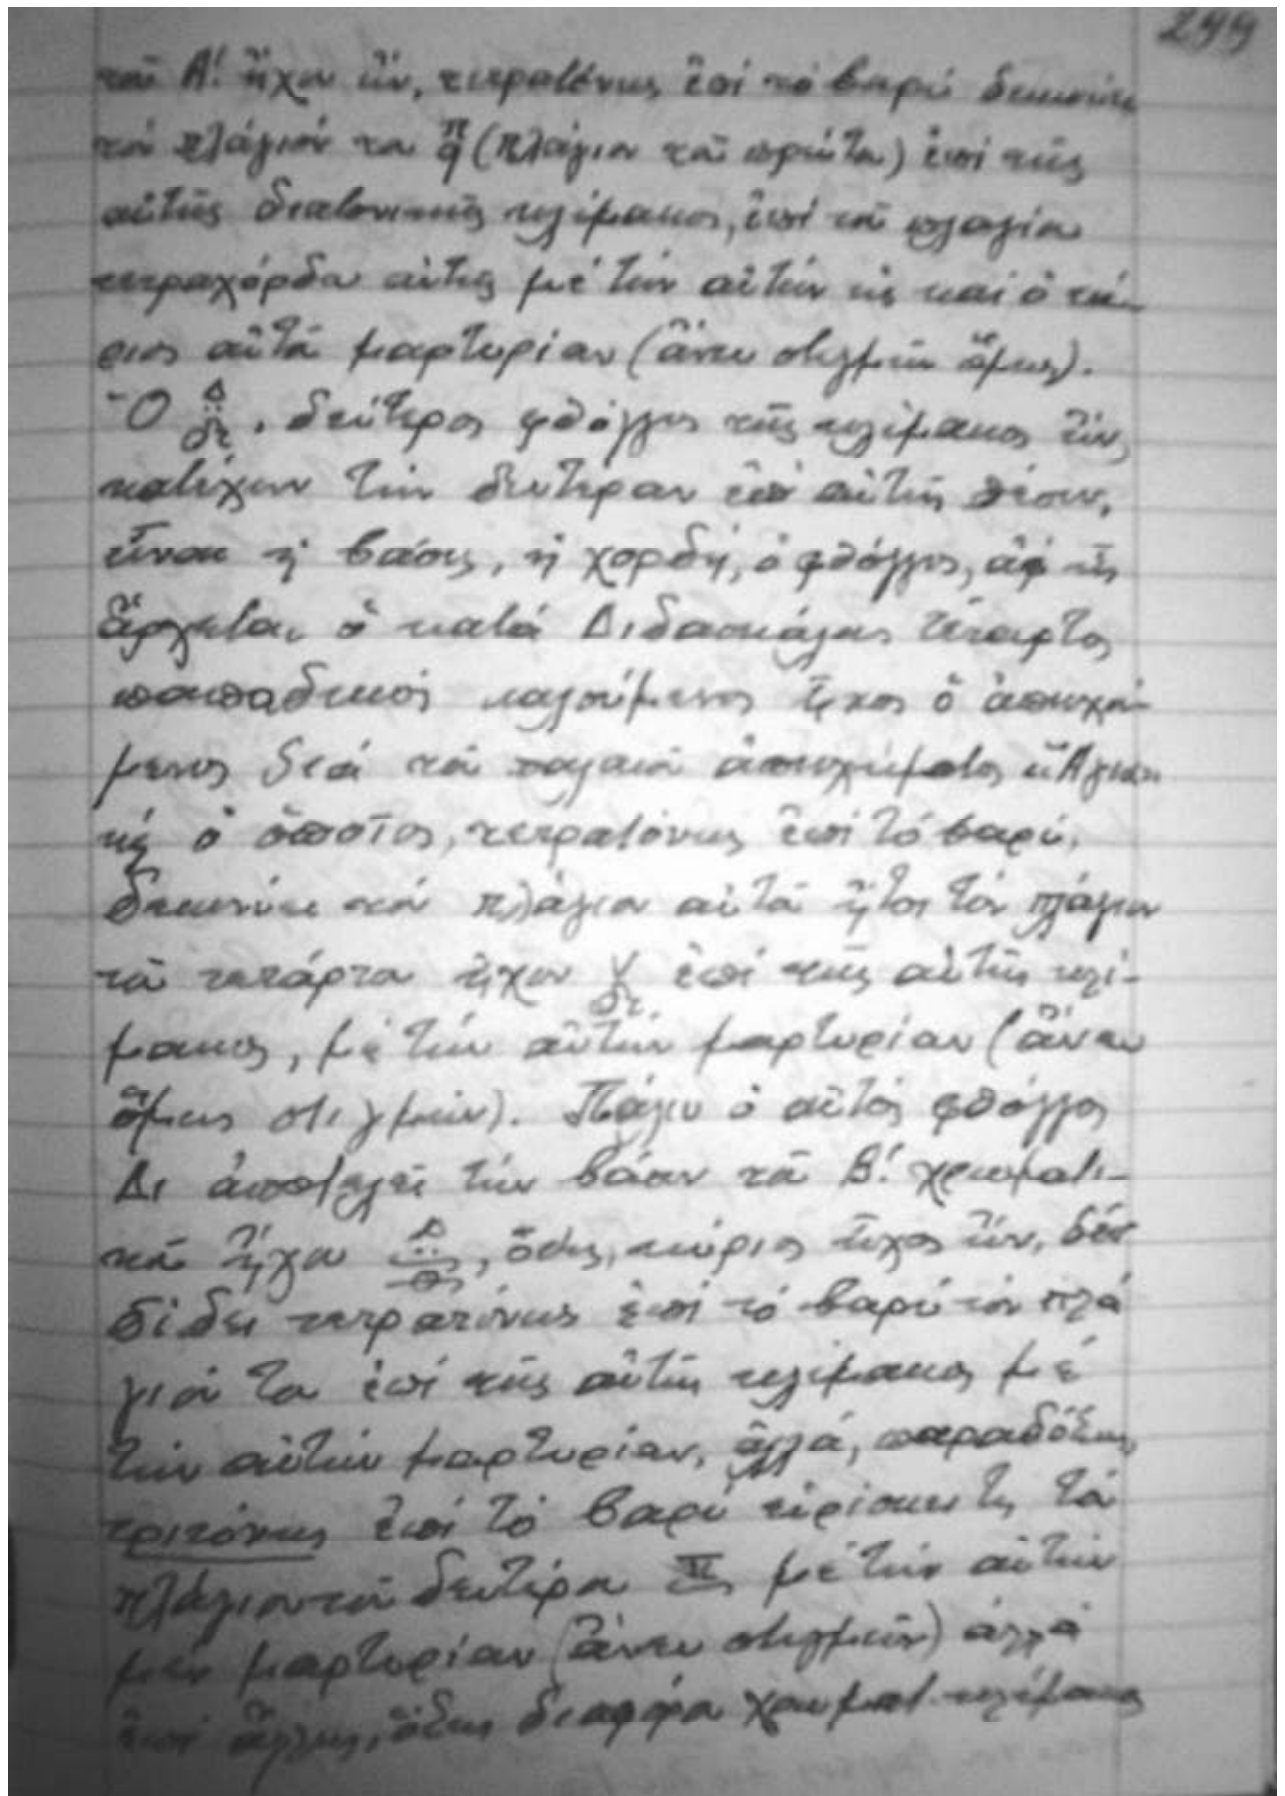 299
τοῦ Α! ἤχου ὤν, τετρατόνως ἐπί τό βαρύ δεικνύει
τόν πλάγιόν του π/q (πλάγιον τοῦ πρώτου) ἐπί τῆς
αὐτῆς διατονικῆς κλίμακος, ἐπί τοῦ πλαγίου
τετραχόρδου αὐτῆς μέ τήν αὐτήν ὡς καί ὁ κύ-
ριος αὐτοῦ μαρτυρίαν (ἄνευ στιγμῶν ὅμως).
-Ὁ Δ, δεύτερος φθόγγος τῆς κλίμακος ὤν,
κατέχων τήν δευτέραν ἐπ' αὐτῆς θέσιν,
εἶναι ἡ βάσις, ἡ χορδή, ὁ φθόγγος, ἀφ' ἧς
ἄρχεται ὁ κατά Διδασκάλους τέταρτος
παπαδικός καλούμενος ἦχος ὁ ἀπηχού-
μενος διά τοῦ παλαιοῦ ἀπηχήματος "Ἅγια"
ὁ ὁποῖος, τετρατόνως ἐπί τό βαρύ,
δεικνύει τόν πλάγιον αὐτοῦ ἤτοι τόν πλάγιον
τοῦ τετάρτου ἦχον ἐπί τῆς αὐτῆς κλί-
μακος, μέ τήν αὐτήν μαρτυρίαν (ἄνευ
ὅμως στιγμῶν). Πάλιν ὁ αὐτός φθόγγος
Δι ἀποτελεῖ τήν βάσιν τοῦ Β! χρωματι-
κοῦ ἤχου Δ, ὅστις, κύριος ἦχος ὤν,
δίδει τετρατόνως ἐπί τό βαρύ τόν πλά
γιόν του ἐπί τῆς αὐτῆς κλίμακος μέ
τήν αὐτήν μαρτυρίαν, ἀλλά, παραδόξως,
τριτόνως ἐπί τό βαρύ εὑρίσκει τις τόν
πλάγιον τοῦ δευτέρου π μέ τήν αὐτήν
μέν μαρτυρίαν (ἄνευ στιγμῶν) ἀλλά
ἐπί ἄλλης, ὅλως διαφόρου χρωματ. κλίμακος